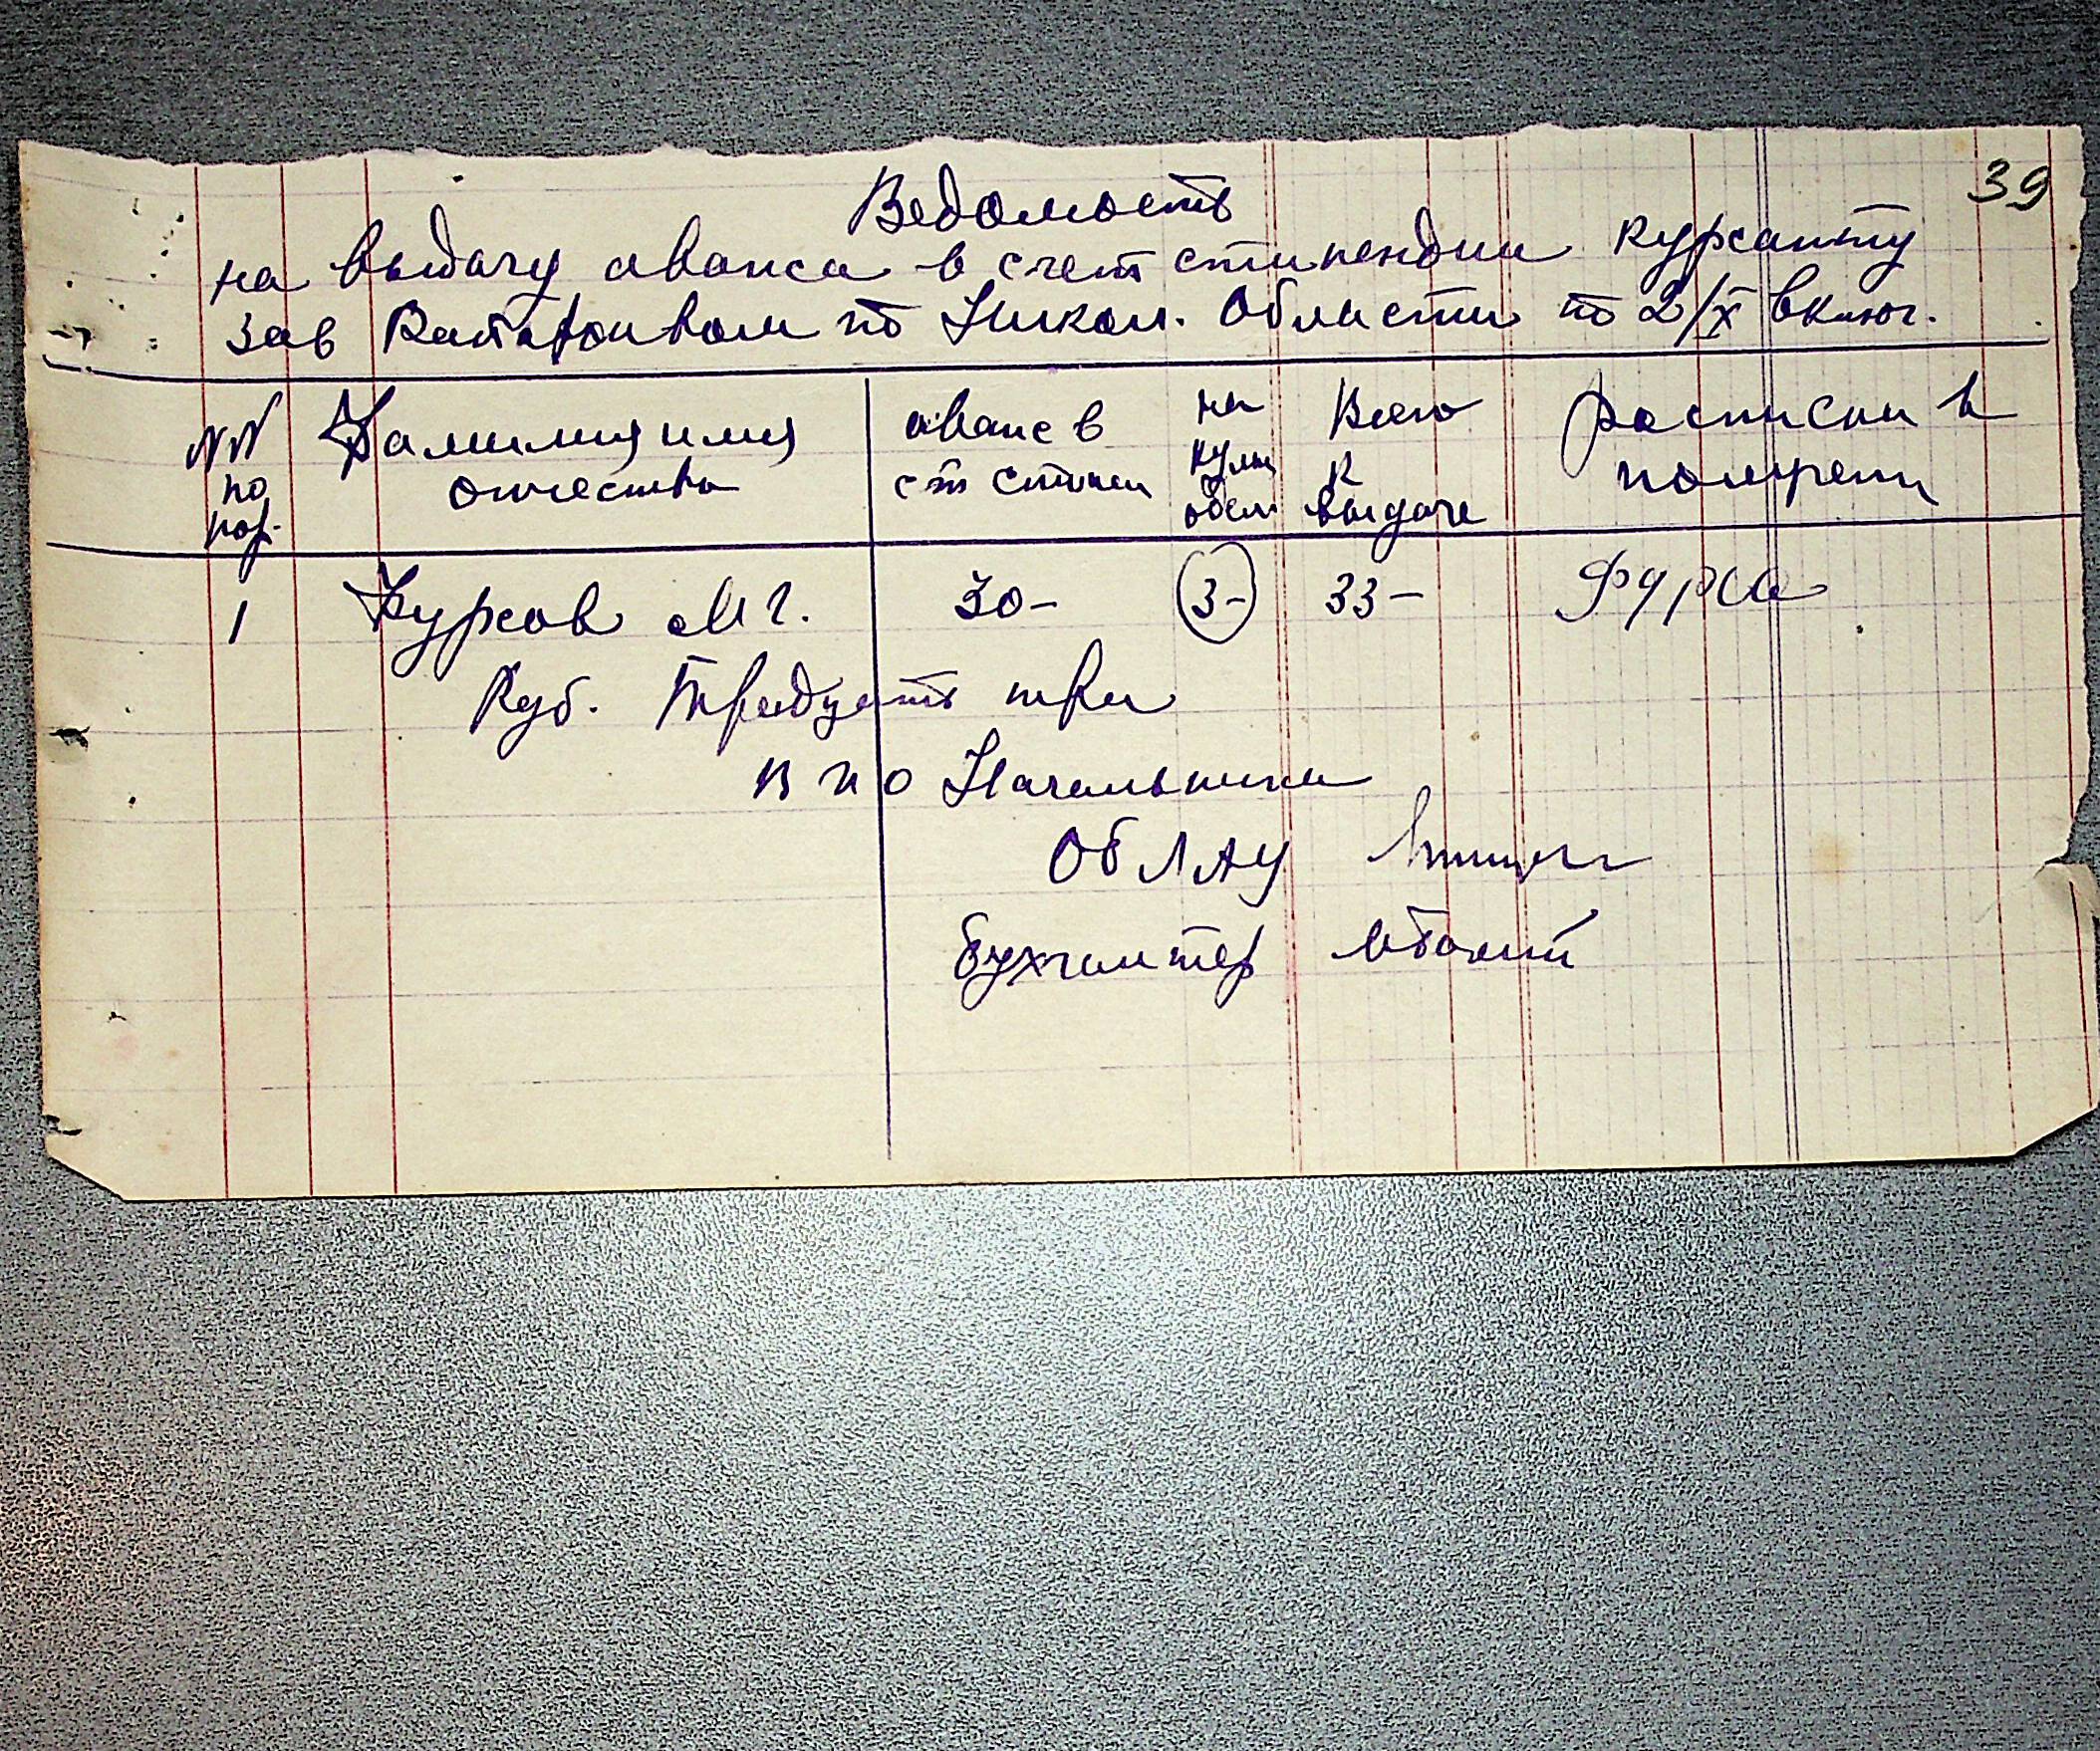 39
Ведомость
на выдачу аванса в счет стипендии курсанту
Зав Райархивом по Никол. Области по 2/X включ.
NN по пор.
Фамилия имя отчество
аванс в ст стипен
на культ обсл
Всего к выдаче
Расписки в получен
1 Фурсов М Г. 30- 3- 33- Фурсо
Руб. Тридцать три
Начальника
Обл АУ
Бухгалтер